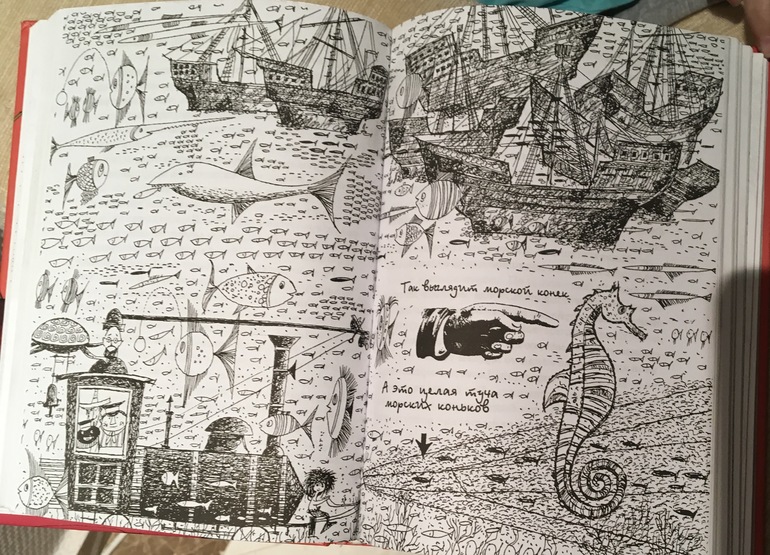 Так выглядит морской конек
А это целая туча
морских коньков